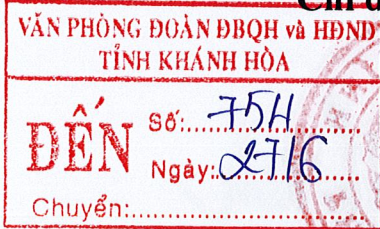 VĂN PHÒNG ĐOÀN ĐBQH và HĐND
TỈNH KHÁNH HÒA
ĐẾN
Số:
Ngày: 27/6
Chuyển: